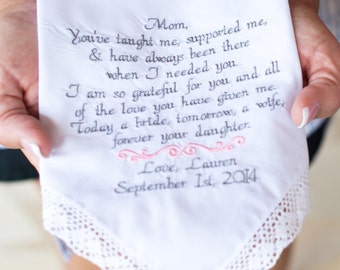 Mom,
You've taught me, supported me,
& have always been there
when I needed you.
I am so grateful for you and all
of the love you have given me.
Today a bride, tomorrow a wife,
forever your daughter.
Love, Lauren
September 1st, 2014